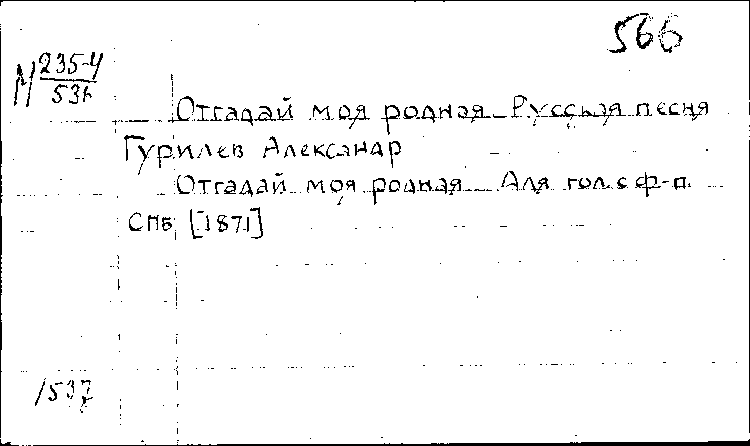 566
М 235-4
536
Отгадай моя родная Русская песня
Гурилев Александр
Отгадай моя родная Для гол. с ф-п.
СПБ [1871]
1537